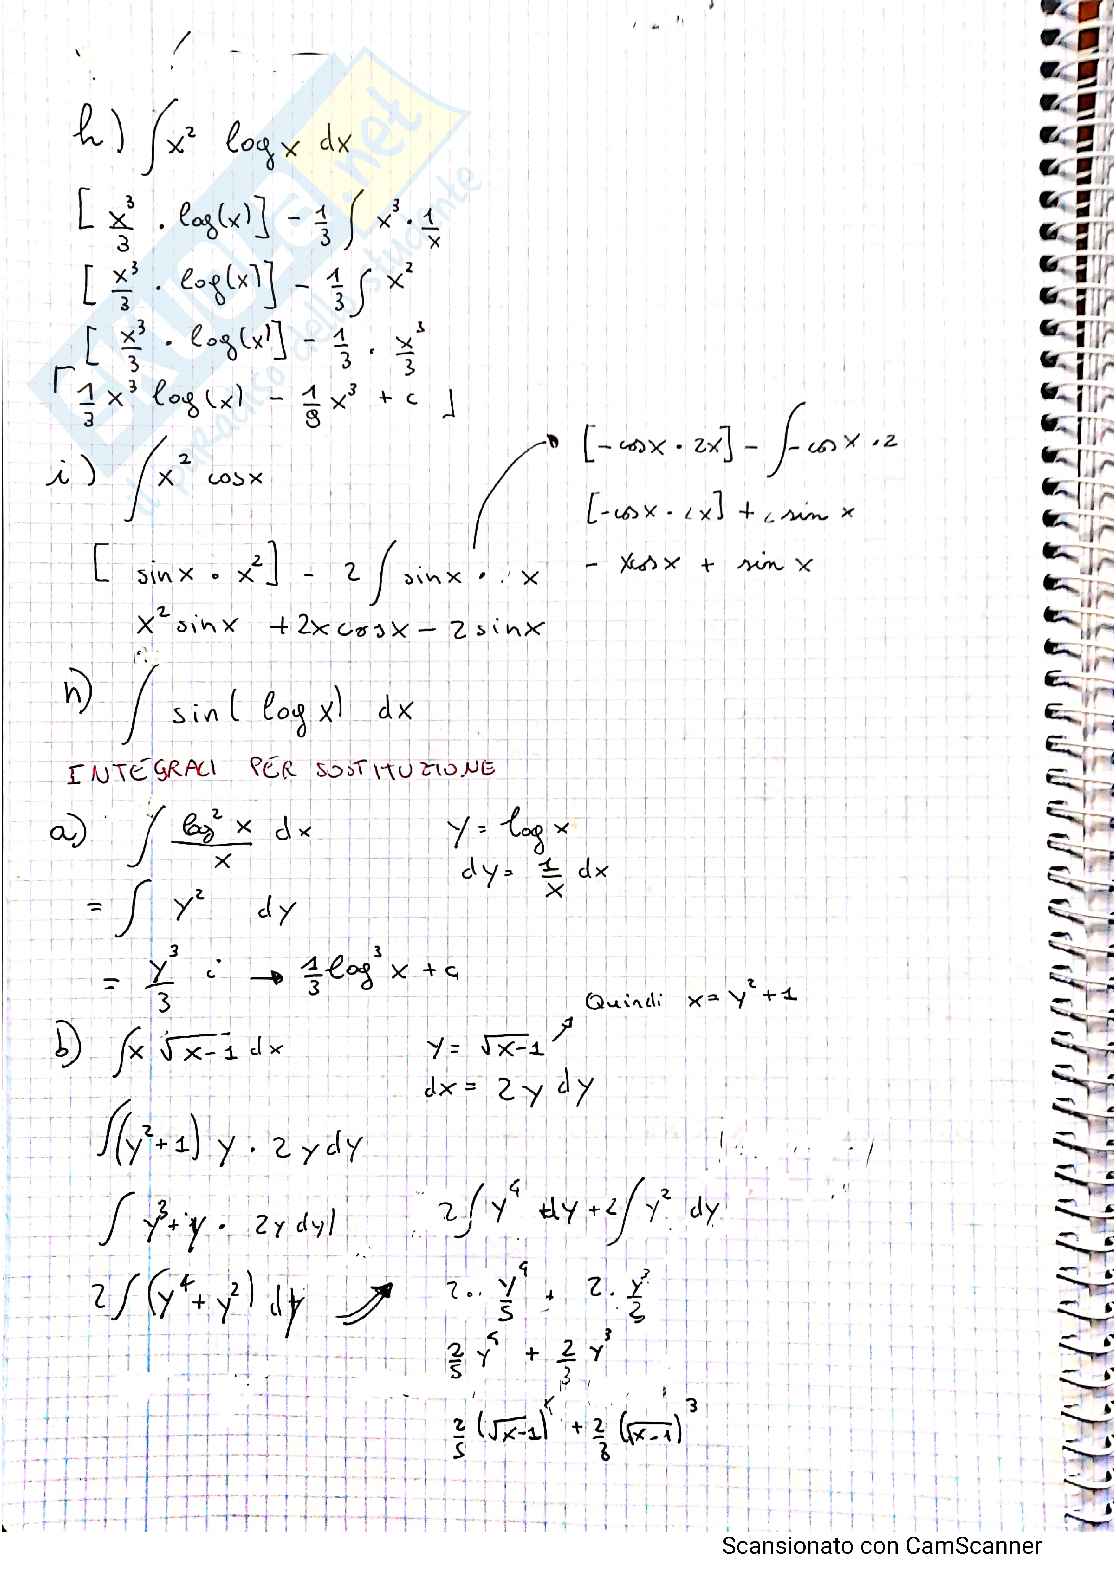 h) ∫ x² log x dx
[x³/3 · log(x)] - 1/3 ∫ x³ · 1/x
[x³/3 · log(x)] - 1/3 ∫ x²
[x³/3 · log(x)] - 1/3 · x³/3
[1/3 x³ log(x) - 1/9 x³ + c]
i) ∫ x² cosx
[sinx · x²] - 2 ∫ sinx · x
[-cosx · 2x] - ∫ -cosx · 2
[-cosx · 2x] + 2 sin x
- xcosx + sin x
x² sinx + 2x cosx - 2 sinx
n) ∫ sin(log x) dx
INTEGRALI PER SOSTITUZIONE
a) ∫ log² x / x dx y = log x
dy = 1/x dx
= ∫ y² dy
= y³/3 → 1/3 log³ x + c
Quindi x = y² + 1
b) ∫ x √x-1 dx y = √x-1
dx = 2y dy
∫ (y²+1) y · 2y dy
∫ y³ + y · 2y dy 2 ∫ y⁴ dy + 2 ∫ y² dy
2 ∫ (y⁴ + y²) dy 2 · y⁵/5 + 2 · y³/3
2/5 y⁵ + 2/3 y³
2/5 (√x-1)⁵ + 2/3 (√x-1)³
SKUOLA.net
il paradiso dello studente
Scansionato con CamScanner